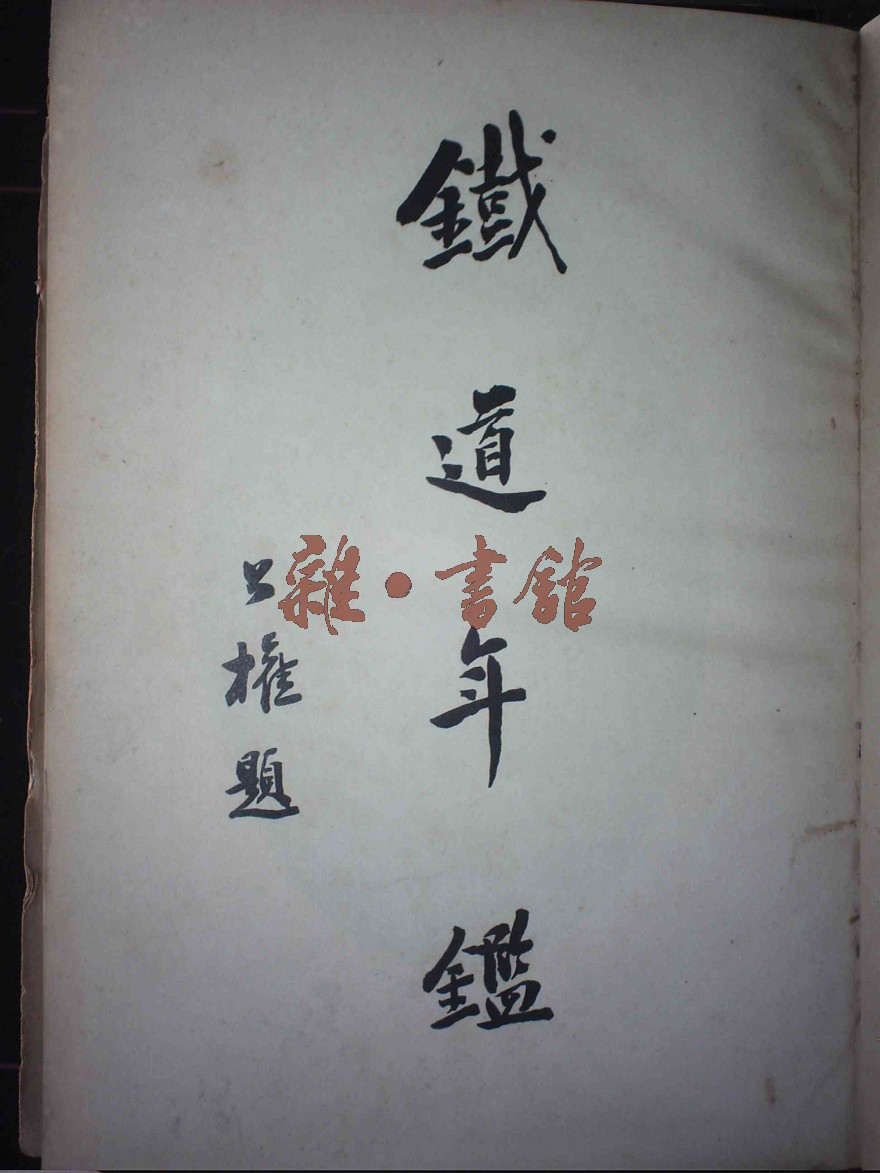 鐵道年鑑
公權題
雜·書館